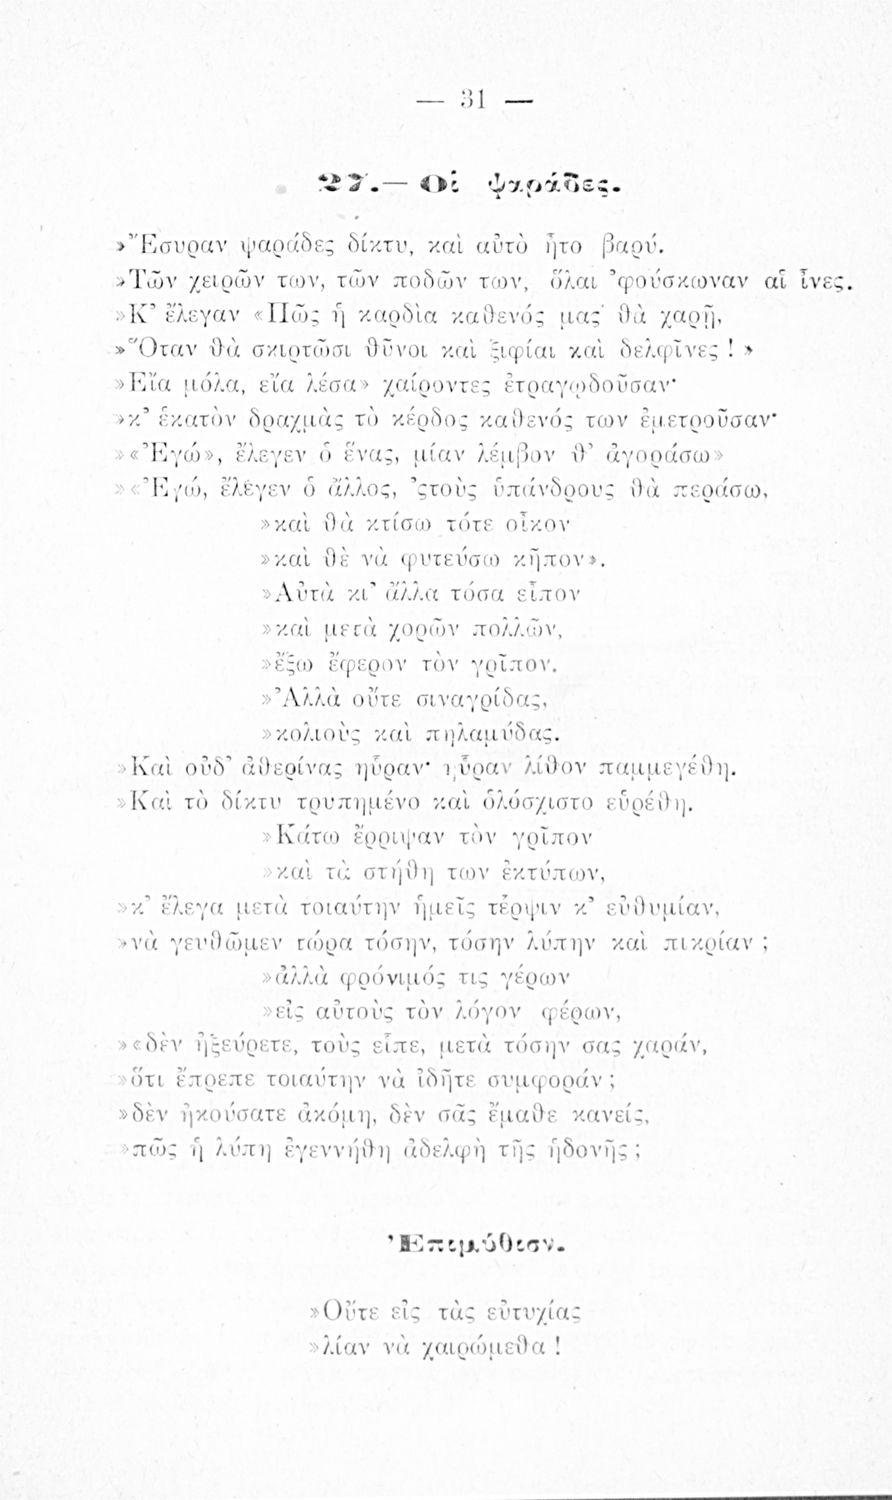 — 31 —
27.— Οἱ ψαράδες.
»Ἔσυραν ψαράδες δίκτυ, καὶ αὐτὸ ἦτο βαρύ.
»Τῶν χειρῶν των, τῶν ποδῶν των, ὅλαι ’φούσκωναν αἱ ἶνες.
»Κ’ ἔλεγαν «Πῶς ἡ καρδὶα καθενός μας θὰ χαρῇ,
»Ὅταν θὰ σκιρτῶσι θῦνοι καὶ ξιφίαι καὶ δελφῖνες ! »
»Εἴα μόλα, εἴα λέσα» χαίροντες ἐτραγῳδοῦσαν·
»κ’ ἑκατὸν δραχμὰς τὸ κέρδος καθενός των ἐμετροῦσαν·
»«Ἐγώ», ἔλεγεν ὁ ἕνας, μίαν λέμβον θ’ ἀγοράσω»
»«Ἐγώ, ἔλεγεν ὁ ἄλλος, ’ςτοὺς ὑπάνδρους θὰ περάσω,
»καὶ θὰ κτίσω τότε οἶκον
»καὶ θὲ νὰ φυτεύσω κῆπον».
»Αὐτὰ κι’ ἄλλα τόσα εἶπον
»καὶ μετὰ χορῶν πολλῶν,
»ἔξω ἔφερον τὸν γρῖπον.
»Ἀλλὰ οὔτε σιναγρίδας,
»κολιοὺς καὶ πηλαμύδας.
»Καὶ οὐδ’ ἀθερίνας ηὗραν· ηὗραν λίθον παμμεγέθη.
»Καὶ τὸ δίκτυ τρυπημένο καὶ ὁλόσχιστο εὑρέθη.
»Κάτω ἔρριψαν τὸν γρῖπον
»καὶ τὰ στήθη των ἐκτύπων,
»κ’ ἔλεγα μετὰ τοιαύτην ἡμεῖς τέρψιν κ’ εὐθυμίαν,
»νὰ γευθῶμεν τώρα τόσην, τόσην λύπην καὶ πικρίαν ;
»ἀλλὰ φρόνιμός τις γέρων
»εἰς αὐτοὺς τὸν λόγον φέρων,
»«δὲν ἠξεύρετε, τοὺς εἶπε, μετὰ τόσην σας χαράν,
»ὅτι ἔπρεπε τοιαύτην νὰ ἰδῆτε συμφοράν ;
»δὲν ἠκούσατε ἀκόμη, δὲν σᾶς ἔμαθε κανείς,
»πῶς ἡ λύπη ἐγεννήθη ἀδελφὴ τῆς ἡδονῆς ;
Ἐπιμύθιον.
»Οὔτε εἰς τὰς εὐτυχίας
»λίαν νὰ χαιρώμεθα !